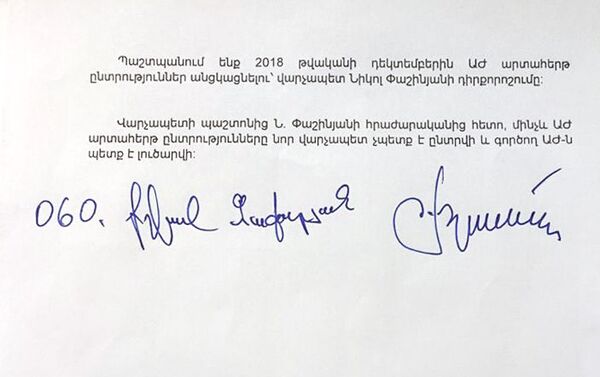 Պաշտպանում ենք 2018 թվականի դեկտեմբերին ԱԺ արտահերթ
ընտրություններ անցկացնելու՝ վարչապետ Նիկոլ Փաշինյանի դիրքորոշումը։
Վարչապետի պաշտոնից Ն. Փաշինյանի հրաժարականից հետո, մինչև ԱԺ
արտահերթ ընտրությունները նոր վարչապետ չպետք է ընտրվի և գործող ԱԺ-ն
պետք է լուծարվի։
060.